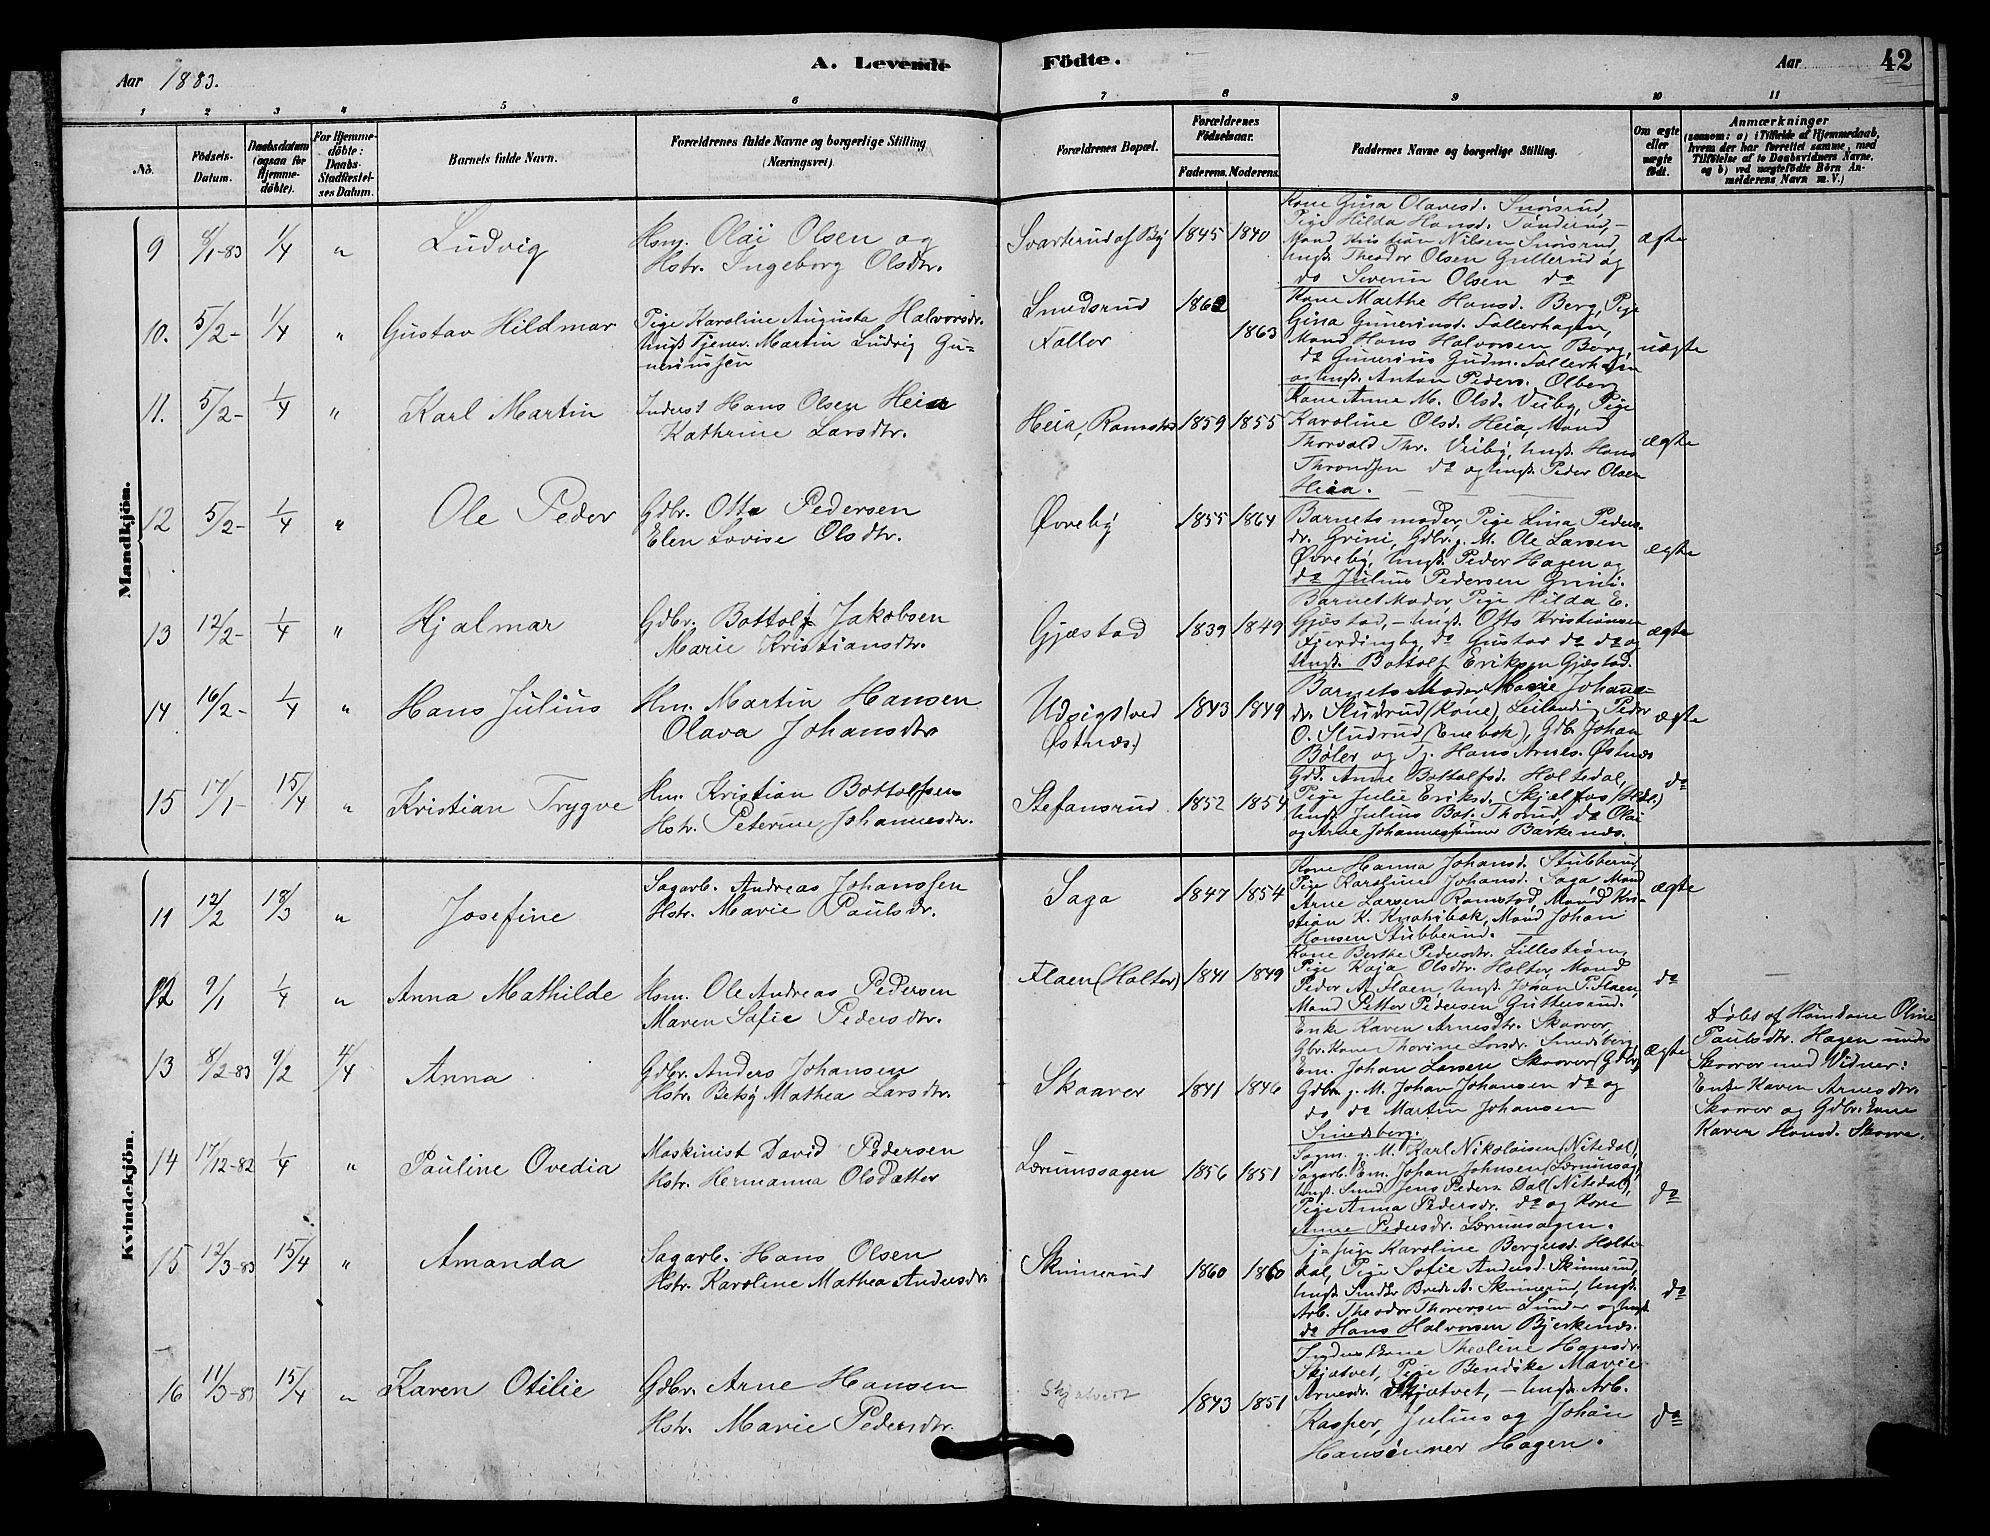 Aar 1883.
A. Levende
Födte.
Aar
42
1 2 3 4 5 6 7 8 9 10 11
No.
Födsels-
Datum.
Daabsdatum
(ogsaa for
Hjemme-
döbte).
For Hjemme-
döbte:
Daabs-
Stadfæstel-
ses Datum.
Barnets fulde Navn.
Forældrenes fulde Navne og borgerlige Stilling
(Næringsvei).
Forældrenes Bopæl.
Forældrenes
Födselsaar.
Faderens. Moderens.
Faddernes Navne og borgerlige Stilling.
Om ægte
eller
uægte
födt.
Anmærkninger
(saasom: a) i Tilfælde af Hjemmedaab,
hvem der har forrettet samme, med
Tilföielse af to Daabsvidners Navne,
og b) ved uægtefödte Börn An-
melderens Navn m. V.)
Mandkjön.
9 8/1-83 1/4 " Ludvig
Hsm. Olai Olsen og
Hstr. Ingeborg Olsdtr.
Svarterud af By 1845 1840
Kone Gina Olavesd. Snörsrud,
Pige Hilda Hansd. Tonderud, -
Mand Kristian Nilsen Snörsrud,
Ungk. Theodor Olsen Gullerud og
do Severin Olsen do
ægte
10. 5/2- 1/4 " Gustav Hildmar
Pige Karoline Augusta Halvorsdr.
Ungk. Tjener Martin Ludvig Gu-
neriussen
Smedsrud 1862
Faller 1863
Kone Marthe Hansd. Berg, Pige
Gina Guneriusd. Fallerhagen,
Mand Hans Halvorsen Berg,
do Gunerius Gudm. Fallerhagen
og Ungk. Anton Peders. Olberg
uægte
11. 5/2- 1/4 " Karl Martin
Inderst Hans Olsen Heia
Kathrine Larsdtr.
Heia, Ramstad 1859 1855
Kone Anne M. Olsd. Veiby, Pige
Karoline Olsd. Heia, Mand
Thorvald Thr. Veiby, Ungk. Hans
Throndsen do og Ungk. Peder Olsen
Heia.
ægte
12 5/2- 1/4 " Ole Peder
Gdbr. Otto Pedersen
Elen Lovise Olsdtr.
Øvreby 1855 1864
Barnets moder, Pige Lina Peders-
dr. Grini, Gdbr. g. M. Ole Larsen
Øvreby, Ungk. Peder Hagen og
do Julius Pedersen Grini.
ægte
13 12/2- 1/4 " Hjalmar
Gdbr. Bottolf Jakobsen
Marie Kristiansdtr.
Gjæstad 1839 1849
Barnet Moder, Pige Hilda E.
Gjæstad, - Ungk. Otto Kristiansen
Fjerdingby, do Gustav do do og
Ungk. Bottolf Eriksen Gjæstad.
ægte
14 16/2- 1/4 " Hans Julius
Hm. Martin Hansen
Olava Johansdtr
Udsigt (ved 1843 1849
Østnæs)
Barnets Moder Marie Johans-
dr. Sludrud (Kone), Leilending Peder
O. Sludrud (Enebak), Gdb. Johan
Bøler og Tj. Hans Arnes. Østnæs
ægte
15 17/1- 15/4 " Kristian Trygve
Hm. Kristian Bottolfsen
Hstr. Peterine Johannesdtr.
Stefansrud 1852 1854
Gdd. Anne Bottolfsd. Holtedal,
Pige Julie Eriksd. Skjælfos
Ungk. Julius Bot. Thorud, do Olai
og Arne Johannessønner Barkenæs.
do
Kvindekjön.
11 12/2 18/3 " Josefine
Sagarb. Andreas Johanssen
Hstr. Marie Paulsdr.
Saga 1847 1854
Kone Hanna Johansd. Stubberud,
Pige Karoline Johansd. Saga Mand
Arne Larsen Ramstad, Mand Kri-
stian K. Knatribak, Mand Johan
Hansen Stubberud.
ægte
12 9/1 1/4 " Anna Mathilde
Hsm. Ole Andreas Pedersen
Maren Sofie Pedersdtr.
Flaen (Holter) 1841 1849
Kone Berthe Pedersdtr. Lillestrøm,
Pige Kaja Olsdtr. Holter, Mand
Peder A. Flaen, Ungk. Johan P. Flaen,
Mand Petter Pedersen Guttersrud.
do
13 8/2-83 9/2 4/4 Anna
Gdbr. Anders Johansen
Hstr. Betsy Mathea Larsdtr.
Skaarer 1841 1846
Enke Karen Arnesdtr. Skaarer,
Gbr. Kone Thorine Larsdr. Smedsberg,
Em. Johan Larsen Skaarer (Gdbr),
Gdbr. g. M. Johan Johansen do og
do do Martin Johansen
Smedsberg.
ægte
Døbt af Hsmdkone Oline
Paulsdtr. Hagen under
Skaarer med Vidner:
Enke Karen Arnesdtr.
Skaarer og Gdbr. Kone
Karen Hansd. Skaare.
14 17/12-82 1/4 " Pauline Ovedia
Maskinist David Pedersen
Hstr. Hermanna Olsdatter
Lærumssagen 1856 1851
Sagm. g. M. Karl Nikolaisen (Nitedal),
Sagarb. Em. Johan Johnsen (Lærumsag),
Ungk. Smed Jens Peders. Dal (Nitedal),
Pige Anna Pedersdr. do og Kone
Anne Pedersdr. Lærumsagen.
do
15 12/3-83 15/4 " Amanda
Sagarb. Hans Olsen
Hstr. Karoline Mathea Andersdr.
Skinnerud 1860 1860
Pige Karoline Bergersd. Holte-
dal, Pige Sofie Andersd. Skinnerud,
Ungk. Brede A. Skinnerud, Ungk.
Arb. Theodor Thoresen Sunder og Ungk.
do Hans Halvorsen Bjerkenæs.
do
16 11/3-83 15/4 " Karen Otilie
Gdbr. Arne Hansen
Hstr. Marie Pedersdtr.
Skjatvedt 1843 1851
Kone Theoline Hansdr.
Skjatvet, Pige Bendike Marie
Arnesdr. Skjatvet, - Ungk. Arb.
Kasper, Julius og Johan
Hansønner Hagen.
do